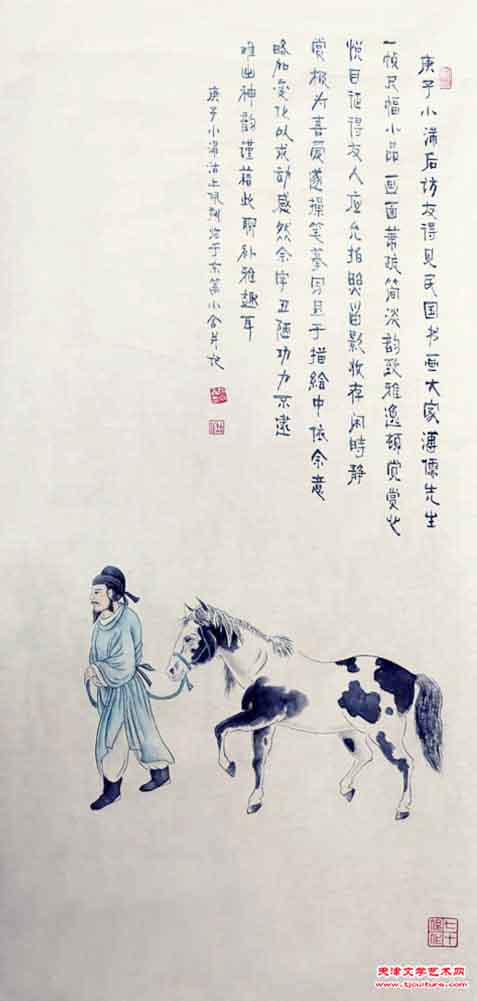 庚子小满后访友得见民国书画大家溥儒先生
一帧尺幅小品画面萧疏简淡韵致雅逸顿觉赏心
悦目征得友人应允拍照留影收存闲时静
赏极为喜爱遂操笔摹写且于描绘中依余意
略加变化以求动感然余字丑陋功力不逮
难出神韵谨藉此聊补雅趣耳
庚子小满沽上绘于小舍并记
七十
天津文学艺术网
www.tjculture.com